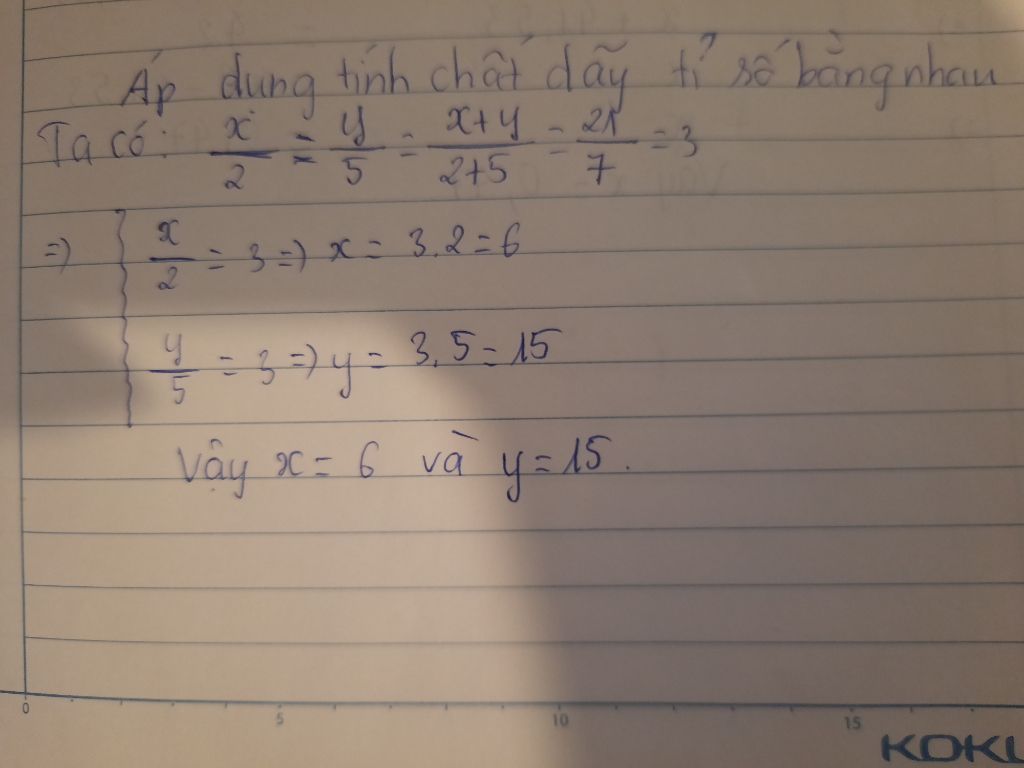 Áp dụng tính chất dãy tỉ số bằng nhau
Ta có: x/2 = y/5 = x+y/2+5 = 21/7 = 3
=> { x/2 = 3 => x = 3.2 = 6
y/5 = 3 => y = 3.5 = 15
Vậy x = 6 và y = 15.
0 5 10 15
KOKU